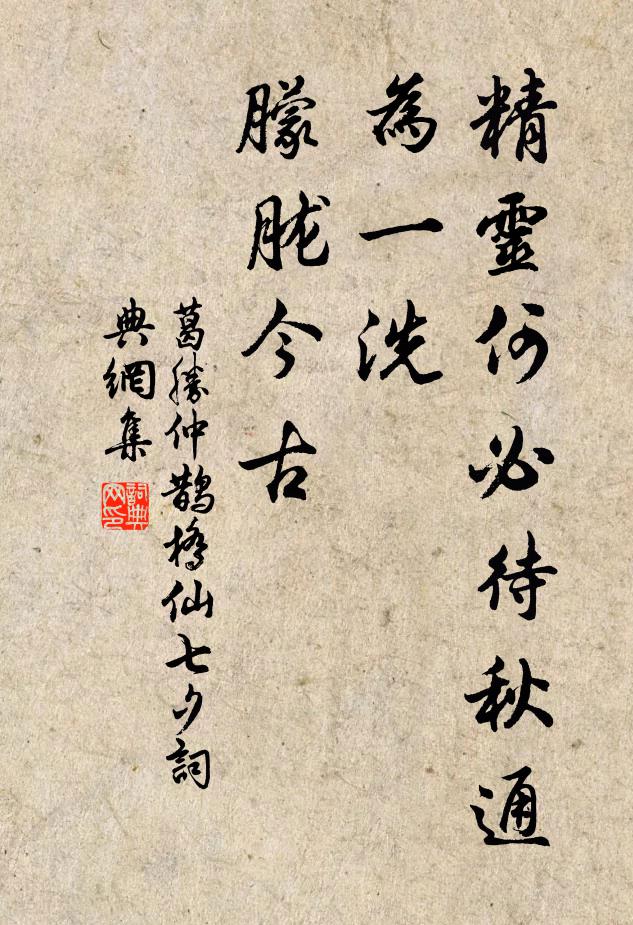 精靈何必待秋通
為一洗
朦朧今古
葛勝仲鵲橋仙七夕詞
典網集
詞典網印